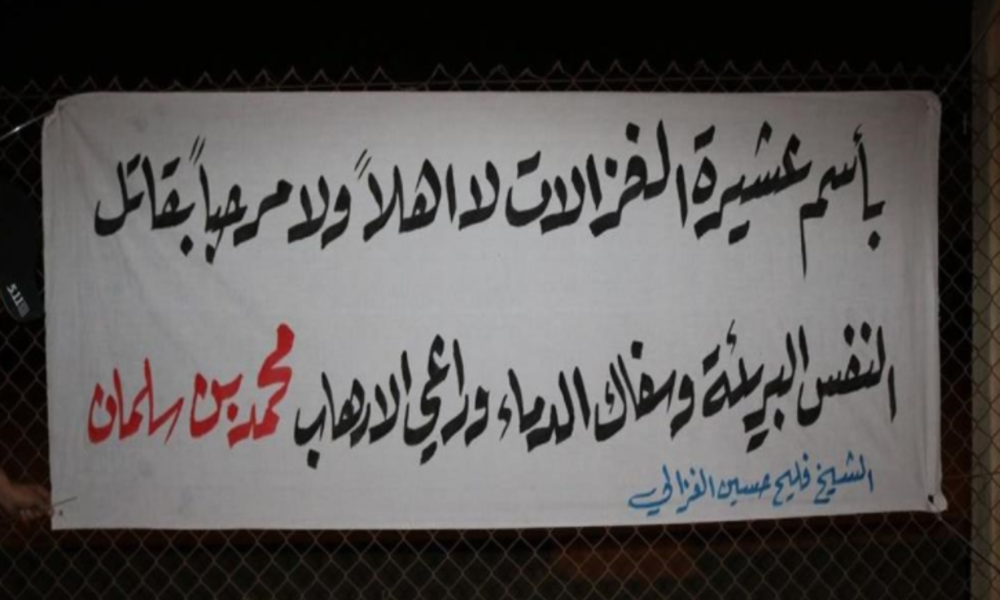 بأسم عشيرة الغزالات لا اهلاً ولا مرحباً بقاتل
النفس البريئة وسفاك الدماء وراعي الارهاب محمد بن سلمان
الشيخ فليح حسين الغزالي
5.11